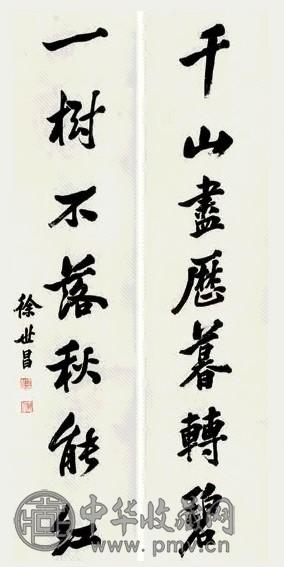 千山盡歷暮轉碧
一樹不落秋能紅
徐世昌
中华收藏网
www.pmv.cn